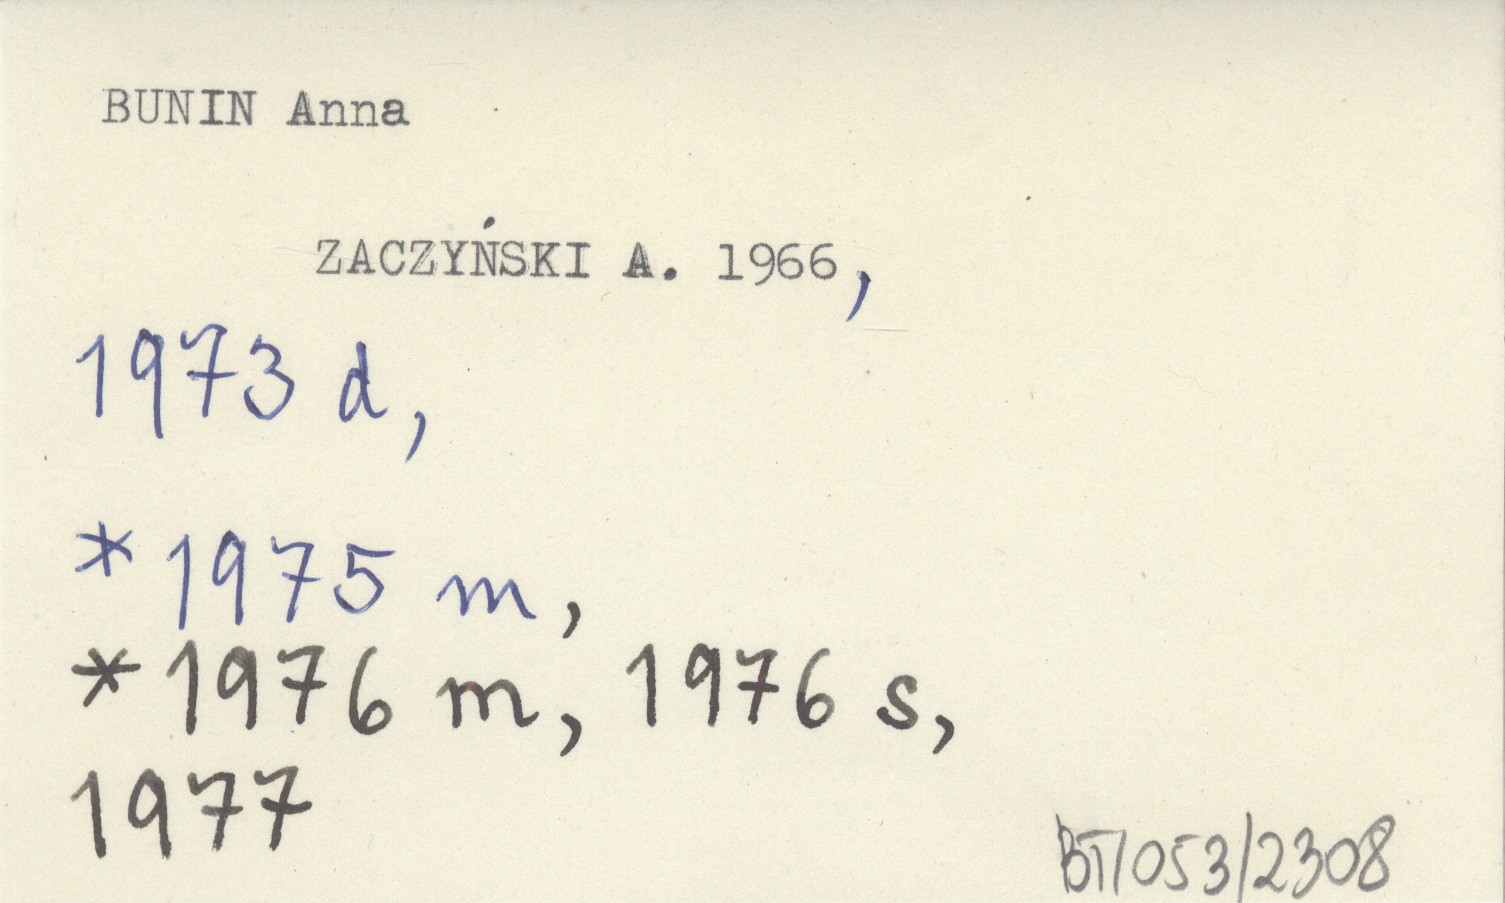 BUNIN Anna
ZACZYŃSKI A. 1966,
1973 d,
* 1975 m,
* 1976 m, 1976 s,
1977
BT/053/2308